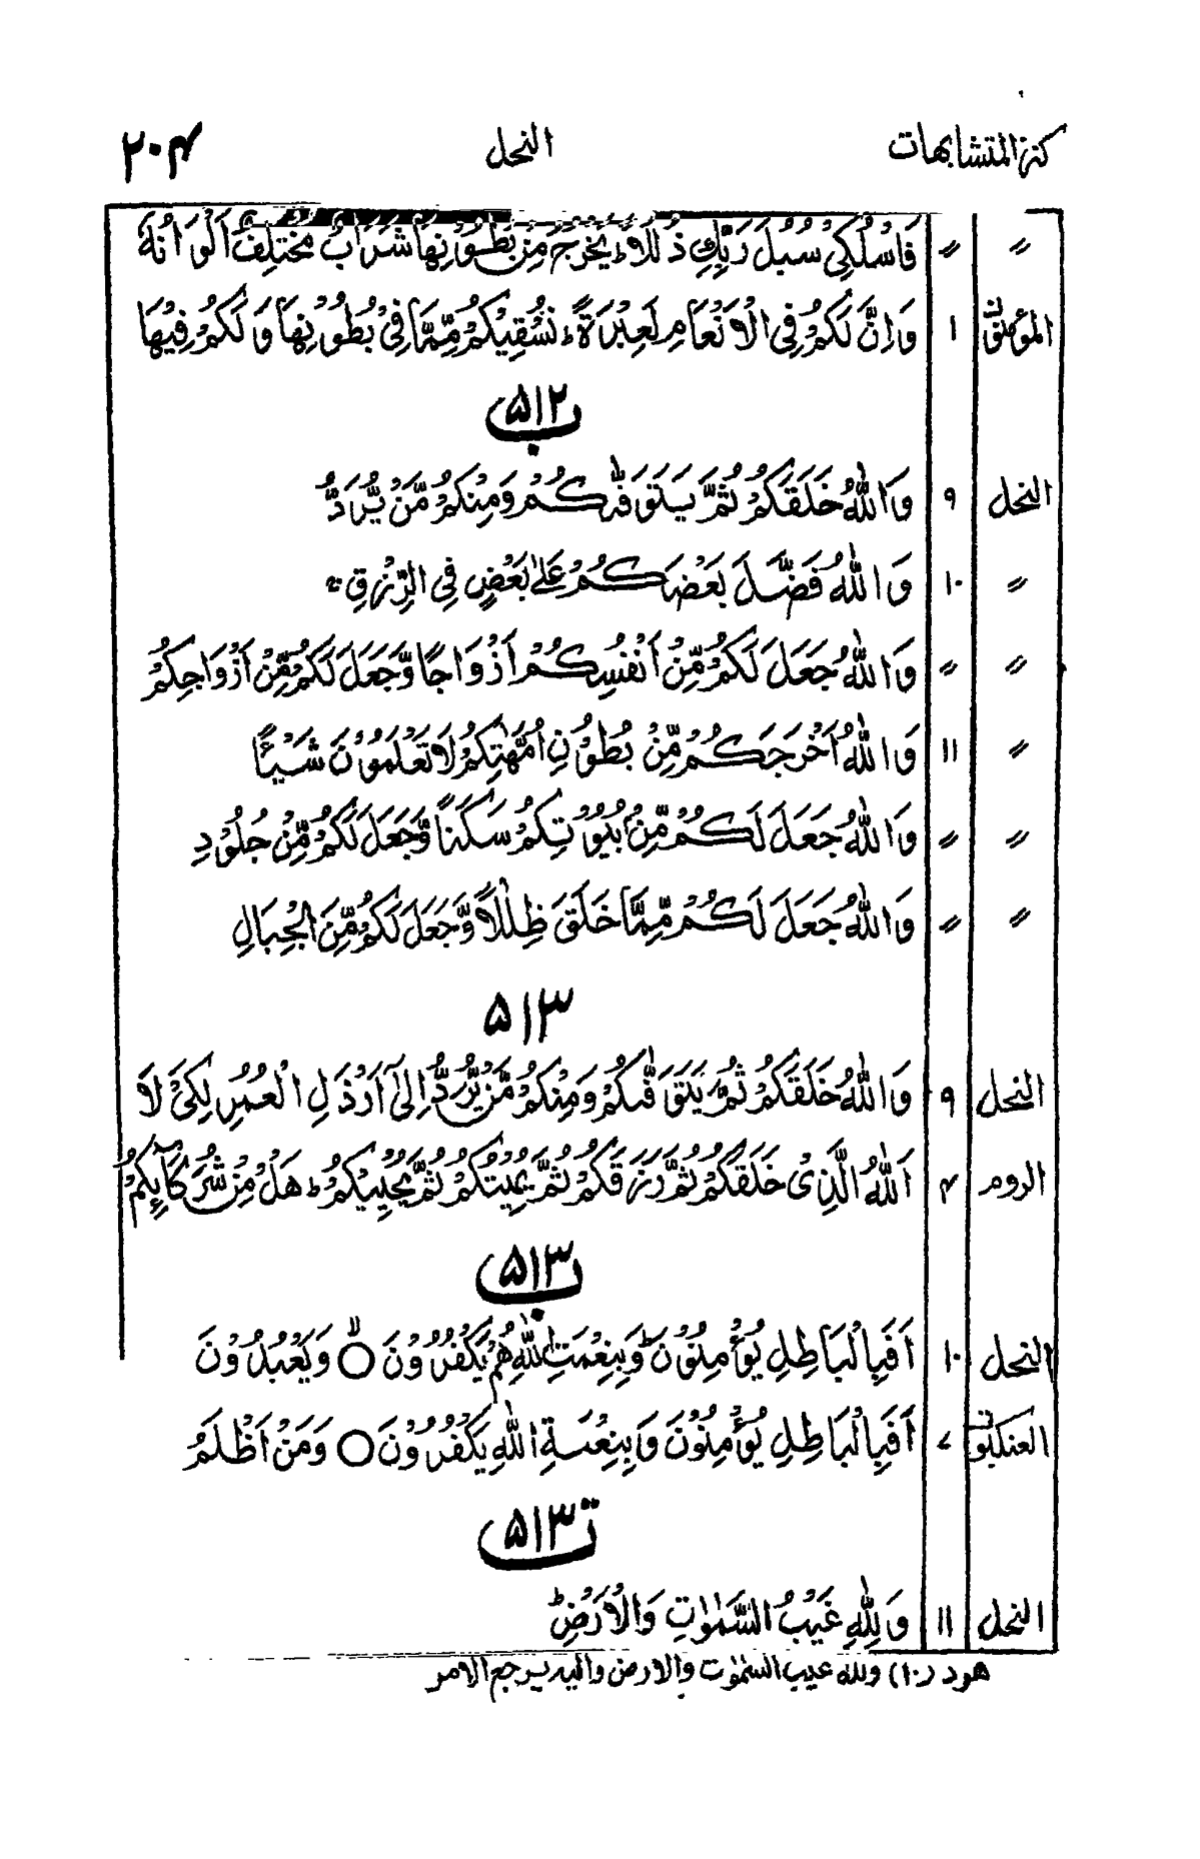 كنز المتشابهات النحل ۲۰۴
〃 〃 فَاسْلُكِيْ سُبُلَ رَبِّكِ ذُلُلًا ؕ يَخْرُجُ مِنْۢ بُطُوْنِهَا شَرَابٌ مُّخْتَلِفٌ اَلْوَانُهٗ
المؤمنون ۱ وَاِنَّ لَكُمْ فِي الْاَنْعَامِ لَعِبْرَةً ؕ نُسْقِيْكُمْ مِّمَّا فِيْ بُطُوْنِهَا وَلَكُمْ فِيْهَا
۵۱۲ ب
النحل ۹ وَاللّٰهُ خَلَقَكُمْ ثُمَّ يَتَوَفّٰىكُمْ وَمِنْكُمْ مَّنْ يُّرَدُّ
〃 ۱۰ وَاللّٰهُ فَضَّلَ بَعْضَكُمْ عَلٰى بَعْضٍ فِي الرِّزْقِ ۚ
〃 〃 وَاللّٰهُ جَعَلَ لَكُمْ مِّنْ اَنْفُسِكُمْ اَزْوَاجًا وَّجَعَلَ لَكُمْ مِّنْ اَزْوَاجِكُمْ
〃 ۱۱ وَاللّٰهُ اَخْرَجَكُمْ مِّنْۢ بُطُوْنِ اُمَّهٰتِكُمْ لَا تَعْلَمُوْنَ شَيْئًا
〃 〃 وَاللّٰهُ جَعَلَ لَكُمْ مِّنْۢ بُيُوْتِكُمْ سَكَنًا وَّجَعَلَ لَكُمْ مِّنْ جُلُوْدِ
〃 〃 وَاللّٰهُ جَعَلَ لَكُمْ مِّمَّا خَلَقَ ظِلٰلًا وَّجَعَلَ لَكُمْ مِّنَ الْجِبَالِ
۵۱۳
النحل ۹ وَاللّٰهُ خَلَقَكُمْ ثُمَّ يَتَوَفّٰىكُمْ وَمِنْكُمْ مَّنْ يُّرَدُّ اِلٰٓى اَرْذَلِ الْعُمُرِ لِكَيْ لَا
الروم ۴ اَللّٰهُ الَّذِيْ خَلَقَكُمْ ثُمَّ رَزَقَكُمْ ثُمَّ يُمِيْتُكُمْ ثُمَّ يُحْيِيْكُمْ ؕ هَلْ مِنْ شُرَكَآئِكُمْ
۵۱۳ ب
النحل ۱۰ اَفَبِالْبَاطِلِ يُؤْمِنُوْنَ وَبِنِعْمَتِ اللّٰهِ هُمْ يَكْفُرُوْنَ ۙ○ وَيَعْبُدُوْنَ
العنكبوت ۷ اَفَبِالْبَاطِلِ يُؤْمِنُوْنَ وَبِنِعْمَةِ اللّٰهِ يَكْفُرُوْنَ ○ وَمَنْ اَظْلَمُ
۵۱۳ ت
النحل ۱۱ وَلِلّٰهِ غَيْبُ السَّمٰوٰتِ وَالْاَرْضِ ؕ
هود (۱۰) ولله غيب السمٰوٰت والارض واليه يرجع الامر